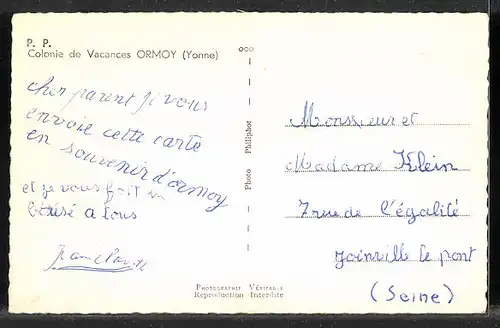 P. P.
Colonie de Vacances ORMOY (Yonne)
cher parent je vous
envoie cette carte
en souvenir d'ormoy
et je vous fait un
a tous
Monsieur et
Madame Klein
7 rue de l'égalité
Joinville le pont
(Seine)
Photo Philiphot
PHOTOGRAPHIE VÉRITABLE
Reproduction Interdite